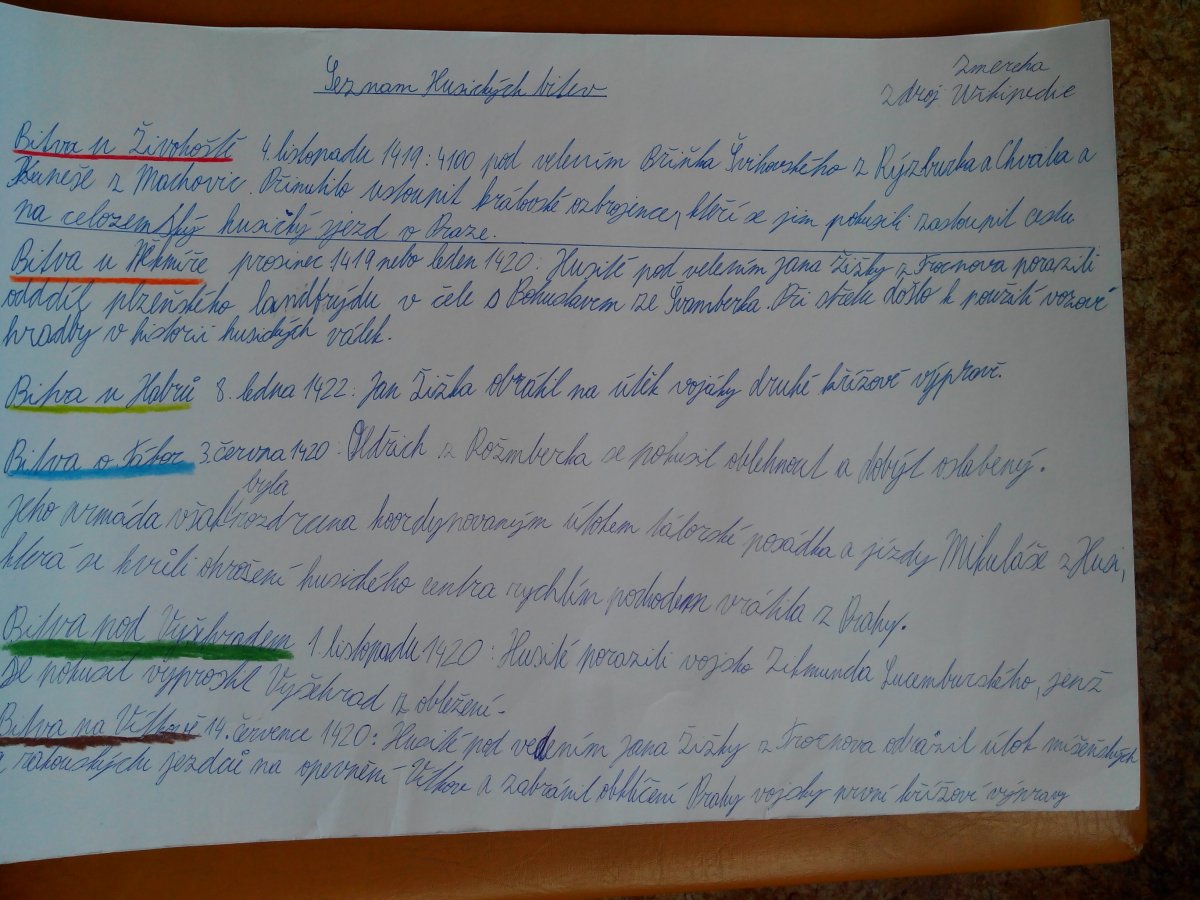 Seznam Husických bitev
Zmercha
Zdroj Wikipedie
Bitva u Živohoště 4. listopadu 1419: 4100 pod velením Břiňka Švihovského z Rýzburka a Chvala a
Kuneše z Machovic. Přinutilo ustoupit královské ozbrojence, kteří se jim pokusili zastoupit cestu
na celozemský husický sjezd v Praze.
Bitva u Nekmíře prosinec 1419 nebo leden 1420: Husité pod velením Jana Žižky z Trocnova porazili
odddíl plzeňského landfrýdu v čele s Bohuslavem ze Švamberka. Při střetu došlo k použití vozové
hradby v historii husických válek.
Bitva u Habrů 8. ledna 1422: Jan Žižka obrátil na útěk vojáky druhé křížové výpravě.
Bitva o Tábor 3. června 1420: Oldřich z Rožmberka se pokusil oblehnout a dobýt oslabený.
byla
Jeho armáda však rozdrcena koordynovaným útokem táborské posádka a jízdy Mikuláše z Husi,
která se kvůli ohrožení husického centra rychlím pochodem vrátila z Prahy.
Bitva pod Vyšehradem 1 listopadu 1420: Husité porazili vojsko Zikmunda Lucemburského, jenž
se pokusil vyprostit Vyšehrad z obležení-
Bitva na Vítkově 14. července 1420: Husité pod velením Jana Žižky z Trocnova odrazil útok míšeňských
a rakouských jezdců na opevnění Vítkov a zabránil obklíčení Prahy vojsky první křížové výpravy